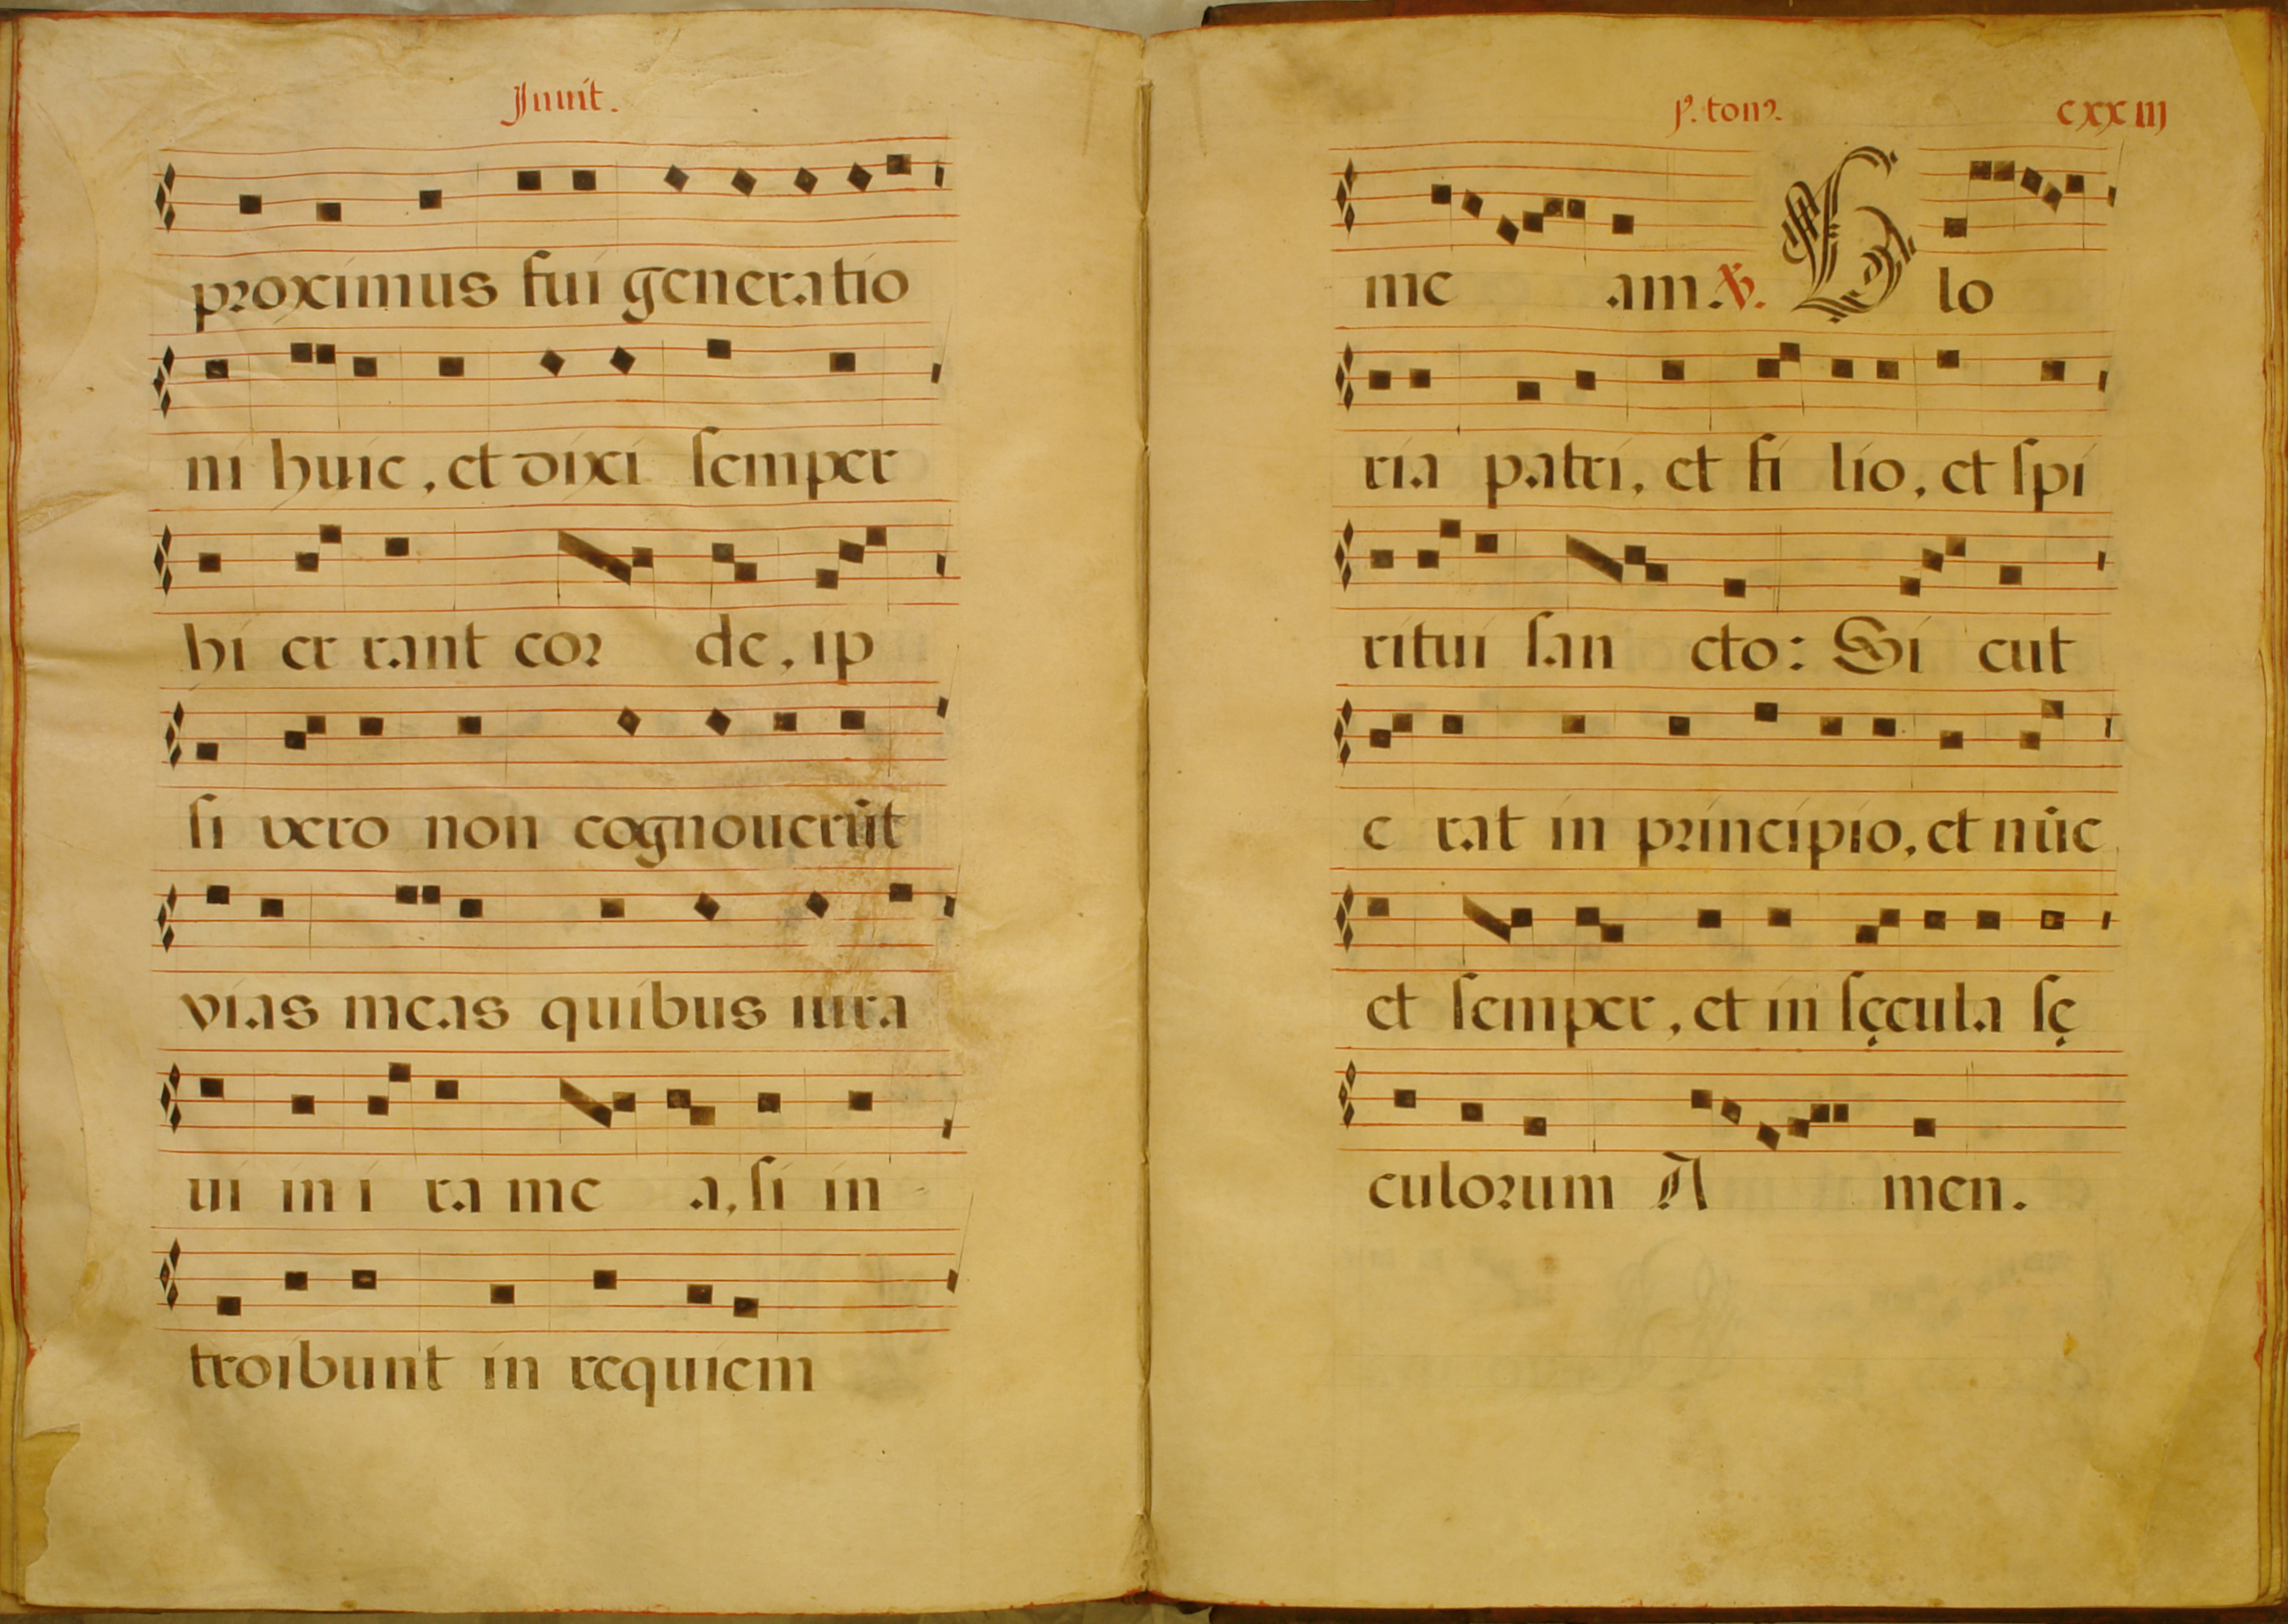 Inuit.
proximus fui generatio
ni huic, et dixi semper
hi er rant cor de, ip
si vero non cognouerūt
vias meas quibus iura
ui in i ra me a, si in
troibunt in requiem
p.º tonꝰ. cxxiij
me am. ℣. Glo
ria patri, et fi lio, et spi
ritui san cto: Si cut
e rat in principio, et nūc
et semper, et in sęcula sę
culorum A men.